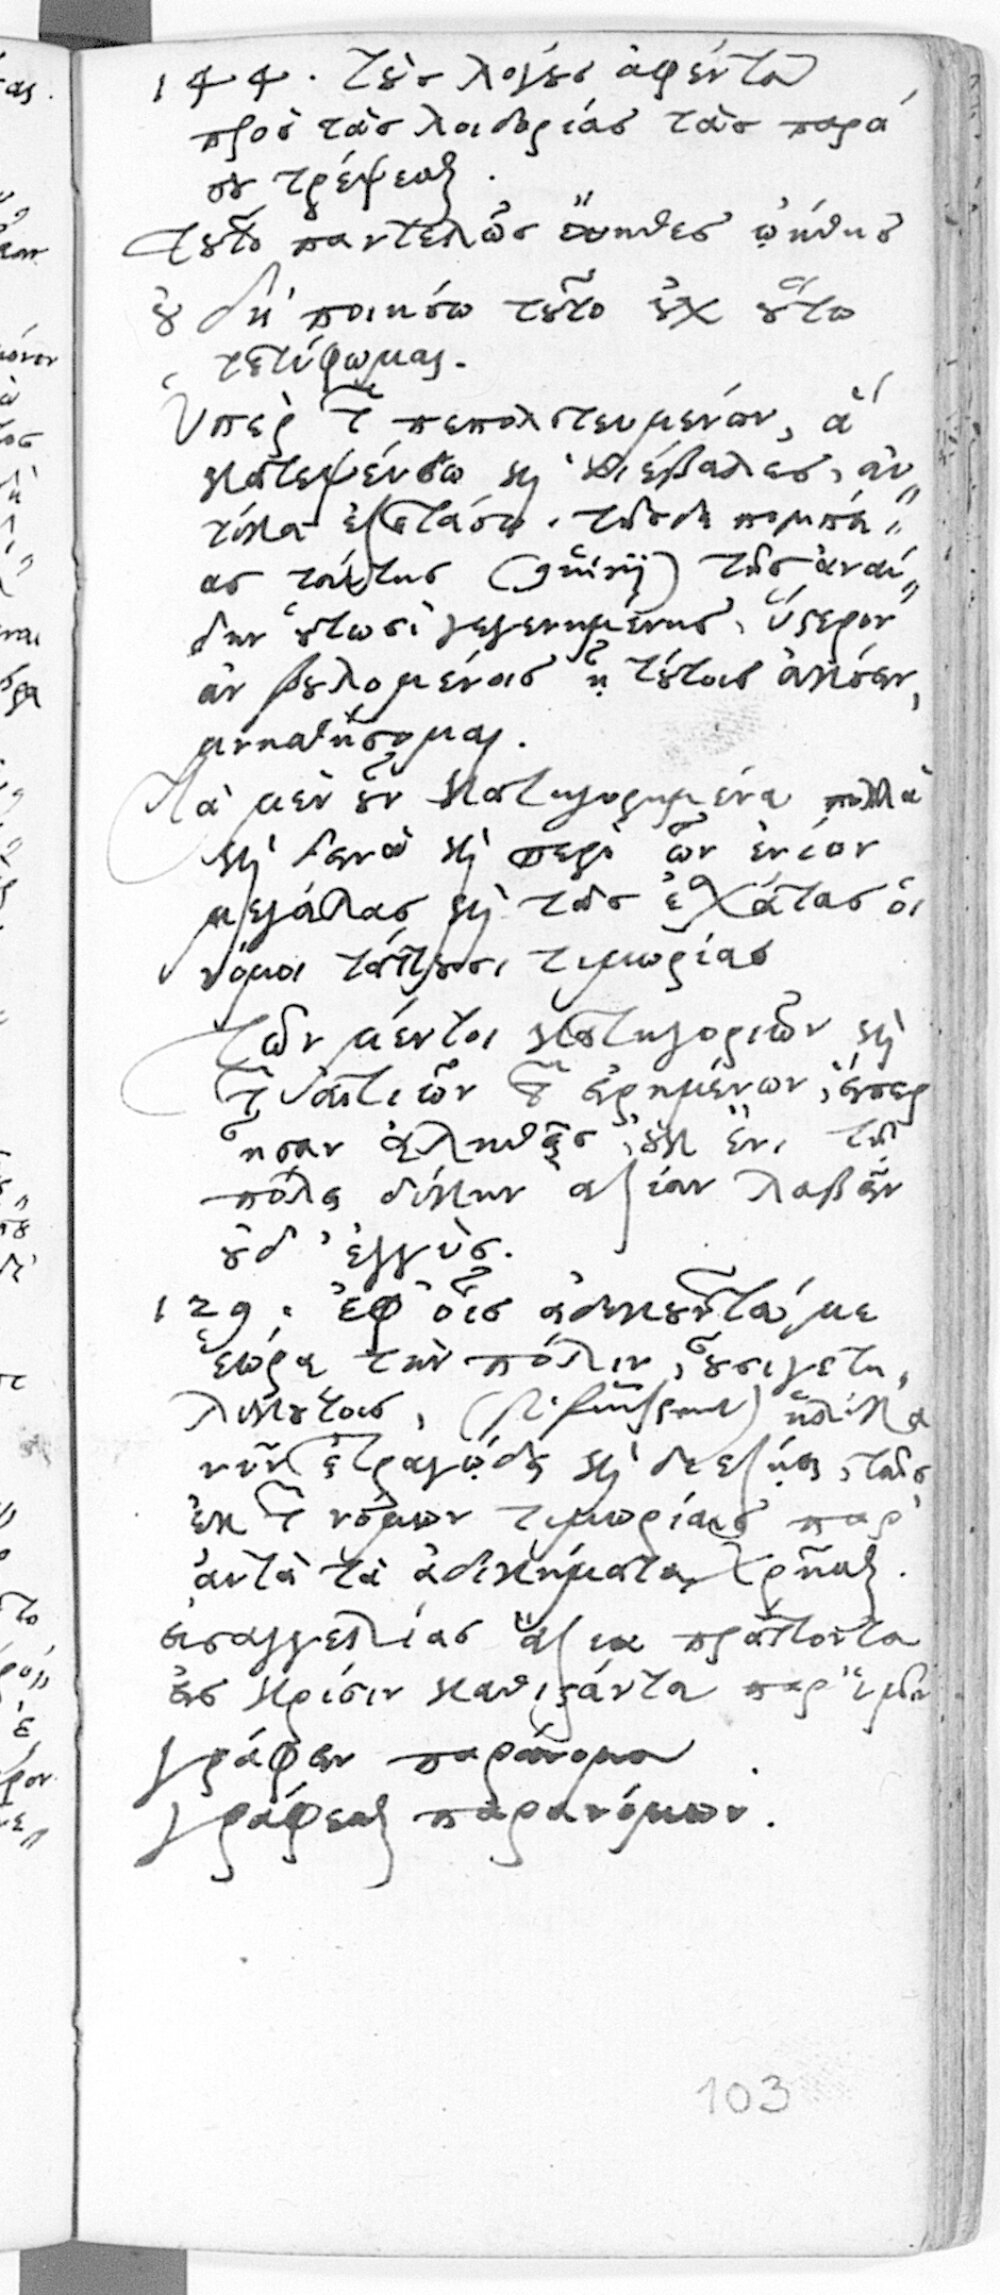 144. τοὺς λόγους ἀφέντα
πρὸς τὰς λοιδορίας τὰς παρά
σου τρέψεσθαι.
τοῦτο παντελῶς εὔηθες ᾠήθης
οὐ δὴ ποιήσω τοῦτο οὐχ οὕτω
τετύφωμαι.
Ὑπὲρ τῶν πεπολιτευμένων, ἃ
κατεψεύδου καὶ διέβαλες, αὐ„
τίκα ἐξετάσω. τῆς δὲ πομπεί„
ας ταύτης τῆς ἀναί„
δην οὑτωσὶ γεγενημένης, ὕστερον
ἂν βουλομένοις ᾖ τούτοις ἀκούειν,
μνησθήσομαι.
Τὰ μὲν οὖν κατηγορημένα πολλὰ
καὶ δεινὰ καὶ περὶ ὧν ἐνίων
μεγάλας καὶ τὰς ἐσχάτας οἱ
νόμοι τάττουσι τιμωρίας
Τῶν μέντοι κατηγοριῶν καὶ
τῶν αἰτιῶν τῶν εἰρημένων, εἴπερ
ἦσαν ἀληθεῖς, οὐκ ἔνι τῇ
πόλει δίκην ἀξίαν λαβεῖν
οὐδ' ἐγγύς.
129. ἐφ' οἷς ἀδικοῦντά με
ἑώρα τὴν πόλιν, οὖσί γε τη„
λικούτοις, ἡλίκα
νῦν ἐτραγῴδει καὶ διεξῄει, ταῖς
ἐκ τῶν νόμων τιμωρίαις παρ'
αὐτὰ τὰ ἀδικήματα χρῆσθαι.
εἰσαγγελίας ἄξια πράττοντα
εἰς κρίσιν καθιστάντα παρ' ὑμῖν
γράφειν παράνομα
γράφεσθαι παρανόμων.
103